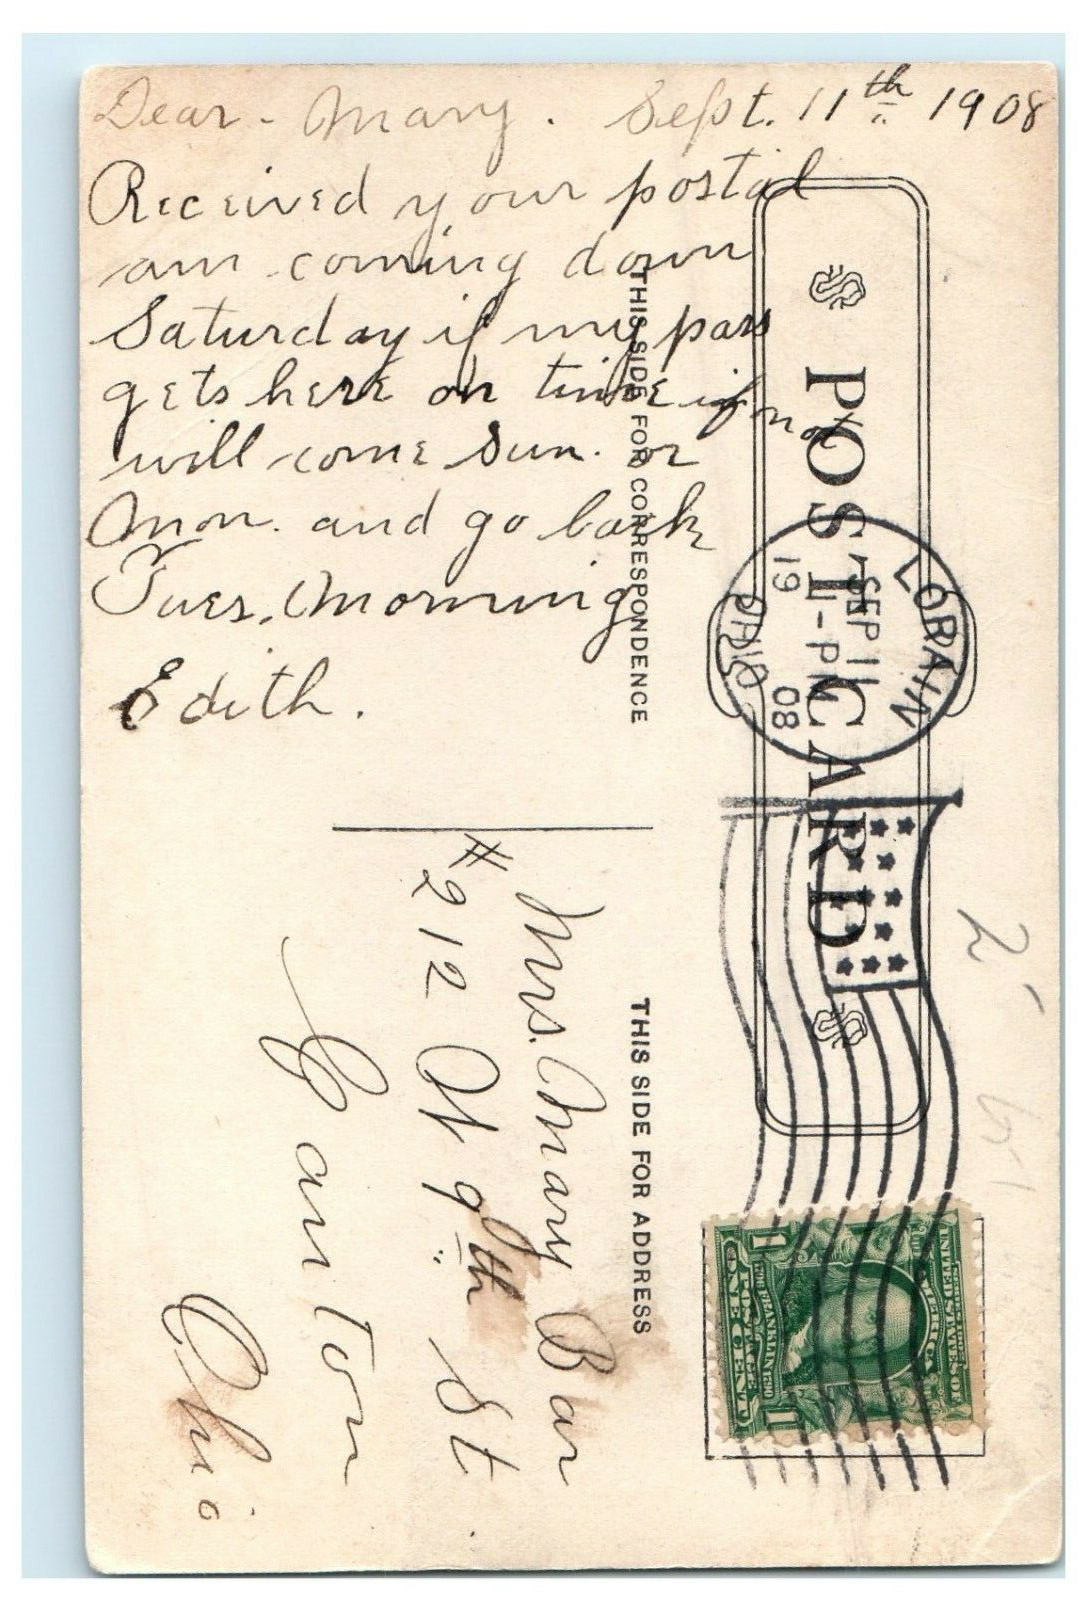 Dear - Mary. Sept. 11th 1908
Received your postal
am coming down
Saturday if my pass
gets here on time if not
will come Sun. or
Mon. and go back
Tues. Morning
Edith.
POST CARD
THIS SIDE FOR CORRESPONDENCE
THIS SIDE FOR ADDRESS
LORAIN
SEP 11
1-PM
19 08
OHIO
Mrs. Mary Bar
#212 W 9th St
Canton
Ohio
UNITED STATES OF
AMERICA
1706 FRANKLIN 1790
POSTAGE
1 ONE CENT 1
2